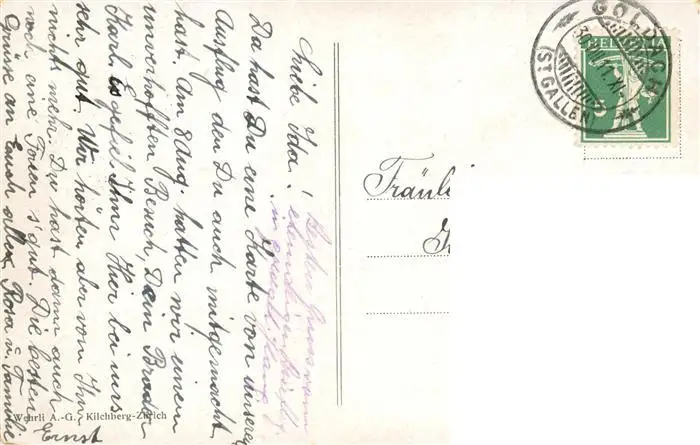 Liebe Ida!
Da hast Du eine Karte von unserem
Ausflug den Du auch mitgemacht
hast. Am 8 Aug. hatten wir einen
unverhofften Besuch, Dein Bruder
Karl. Es gefiel Ihm Hier bei uns
sehr gut. Wir hörten aber vom Ihm
nicht mehr. Du hast dann auch
noch eine s'gut. Die besten
Grüsse an Euch allen Rosa u. Familie
Ernst
Besten Gruss von
in
Wehrli A.-G., Kilchberg-Zürich
Fräuli
GOLDACH
(ST. GALLEN)
XI
HELVETIA